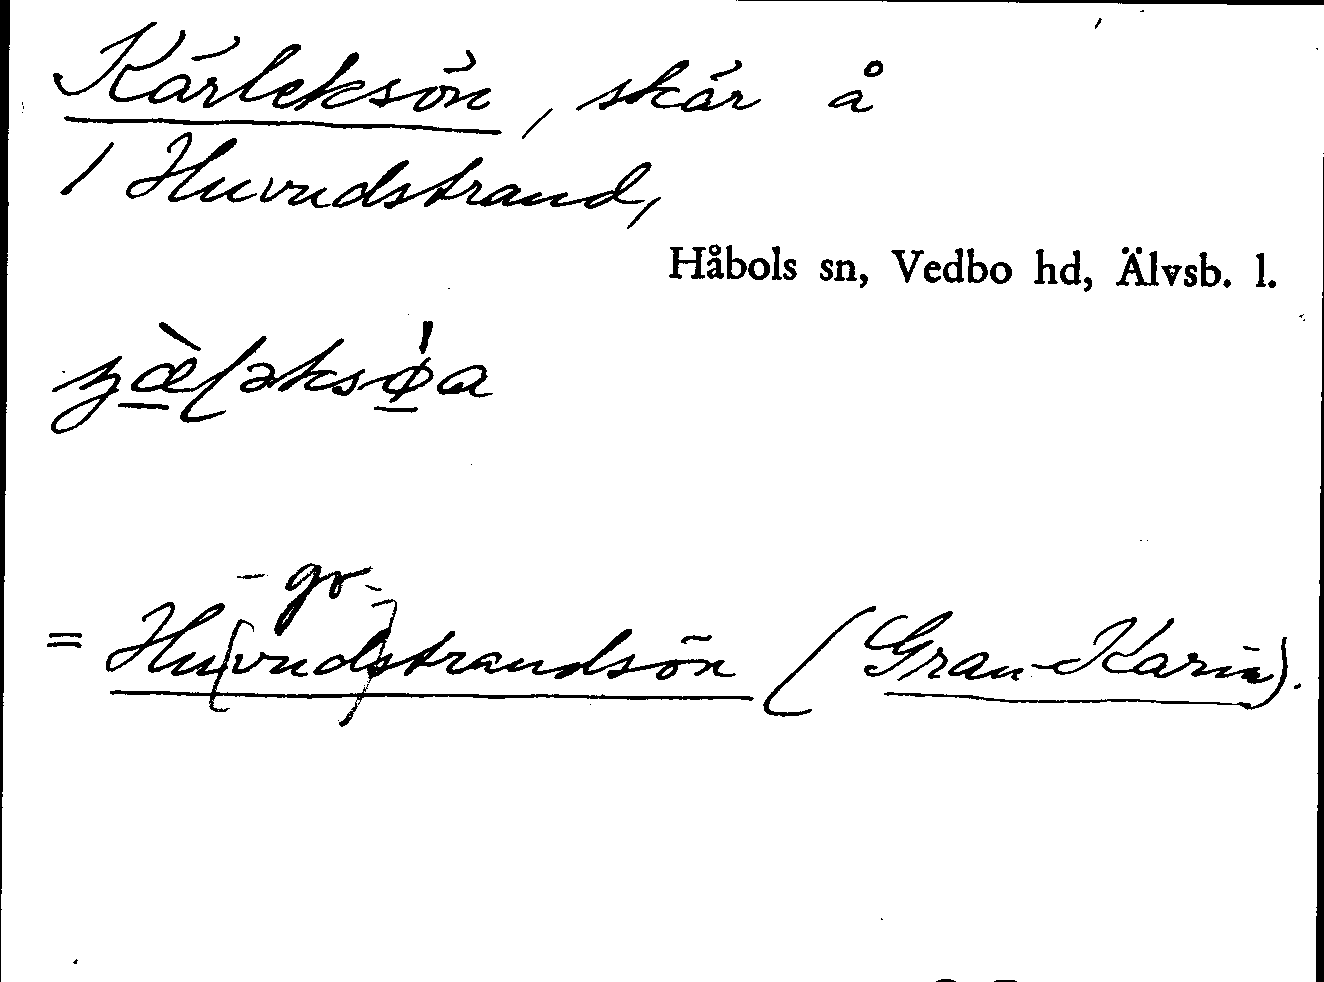 Kärleksön, skär å
1 Huvudstrand,
Håbols sn, Vedbo hd, Älvsb. l.
-gr-
= Hu(vud)strandsön (Gran-Karin).